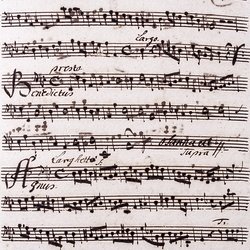 Largo
presto
Benedictus
osanna ut
supra
Larghetto
Agnus